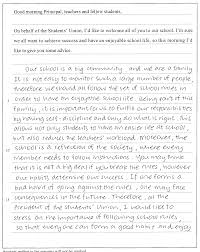 Good morning Principal, teachers and fellow students,
On behalf of the Students' Union, I'd like to welcome all of you to our school. I'm sure
we all want to achieve success and have an enjoyable school life, so this morning I'd
like to give you some advice.
Our school is a big community and we are a family.
It is not easy to monitor such a large number of people,
therefore we should all follow the set of school rules in
order to have an enjoyable school life. Being part of this
family, it is important for us to fulfil our responsibilities
by having self-discipline and only do what is right. This
allows not only students to have an easier life at school,
but also reduces the teachers' workload. Moreover, the
school is a reflection of the society, where every
member needs to follow instructions. You may think
that it is not a big deal if you break the rules, however
our habits determine our success. If one forms a
bad habit of going against the rules, one may face
consequences in the future. Therefore, as the
President of the Students' Union, I would like to
stress on the importance of following school rules,
so that everyone can form a good habit and enjoy